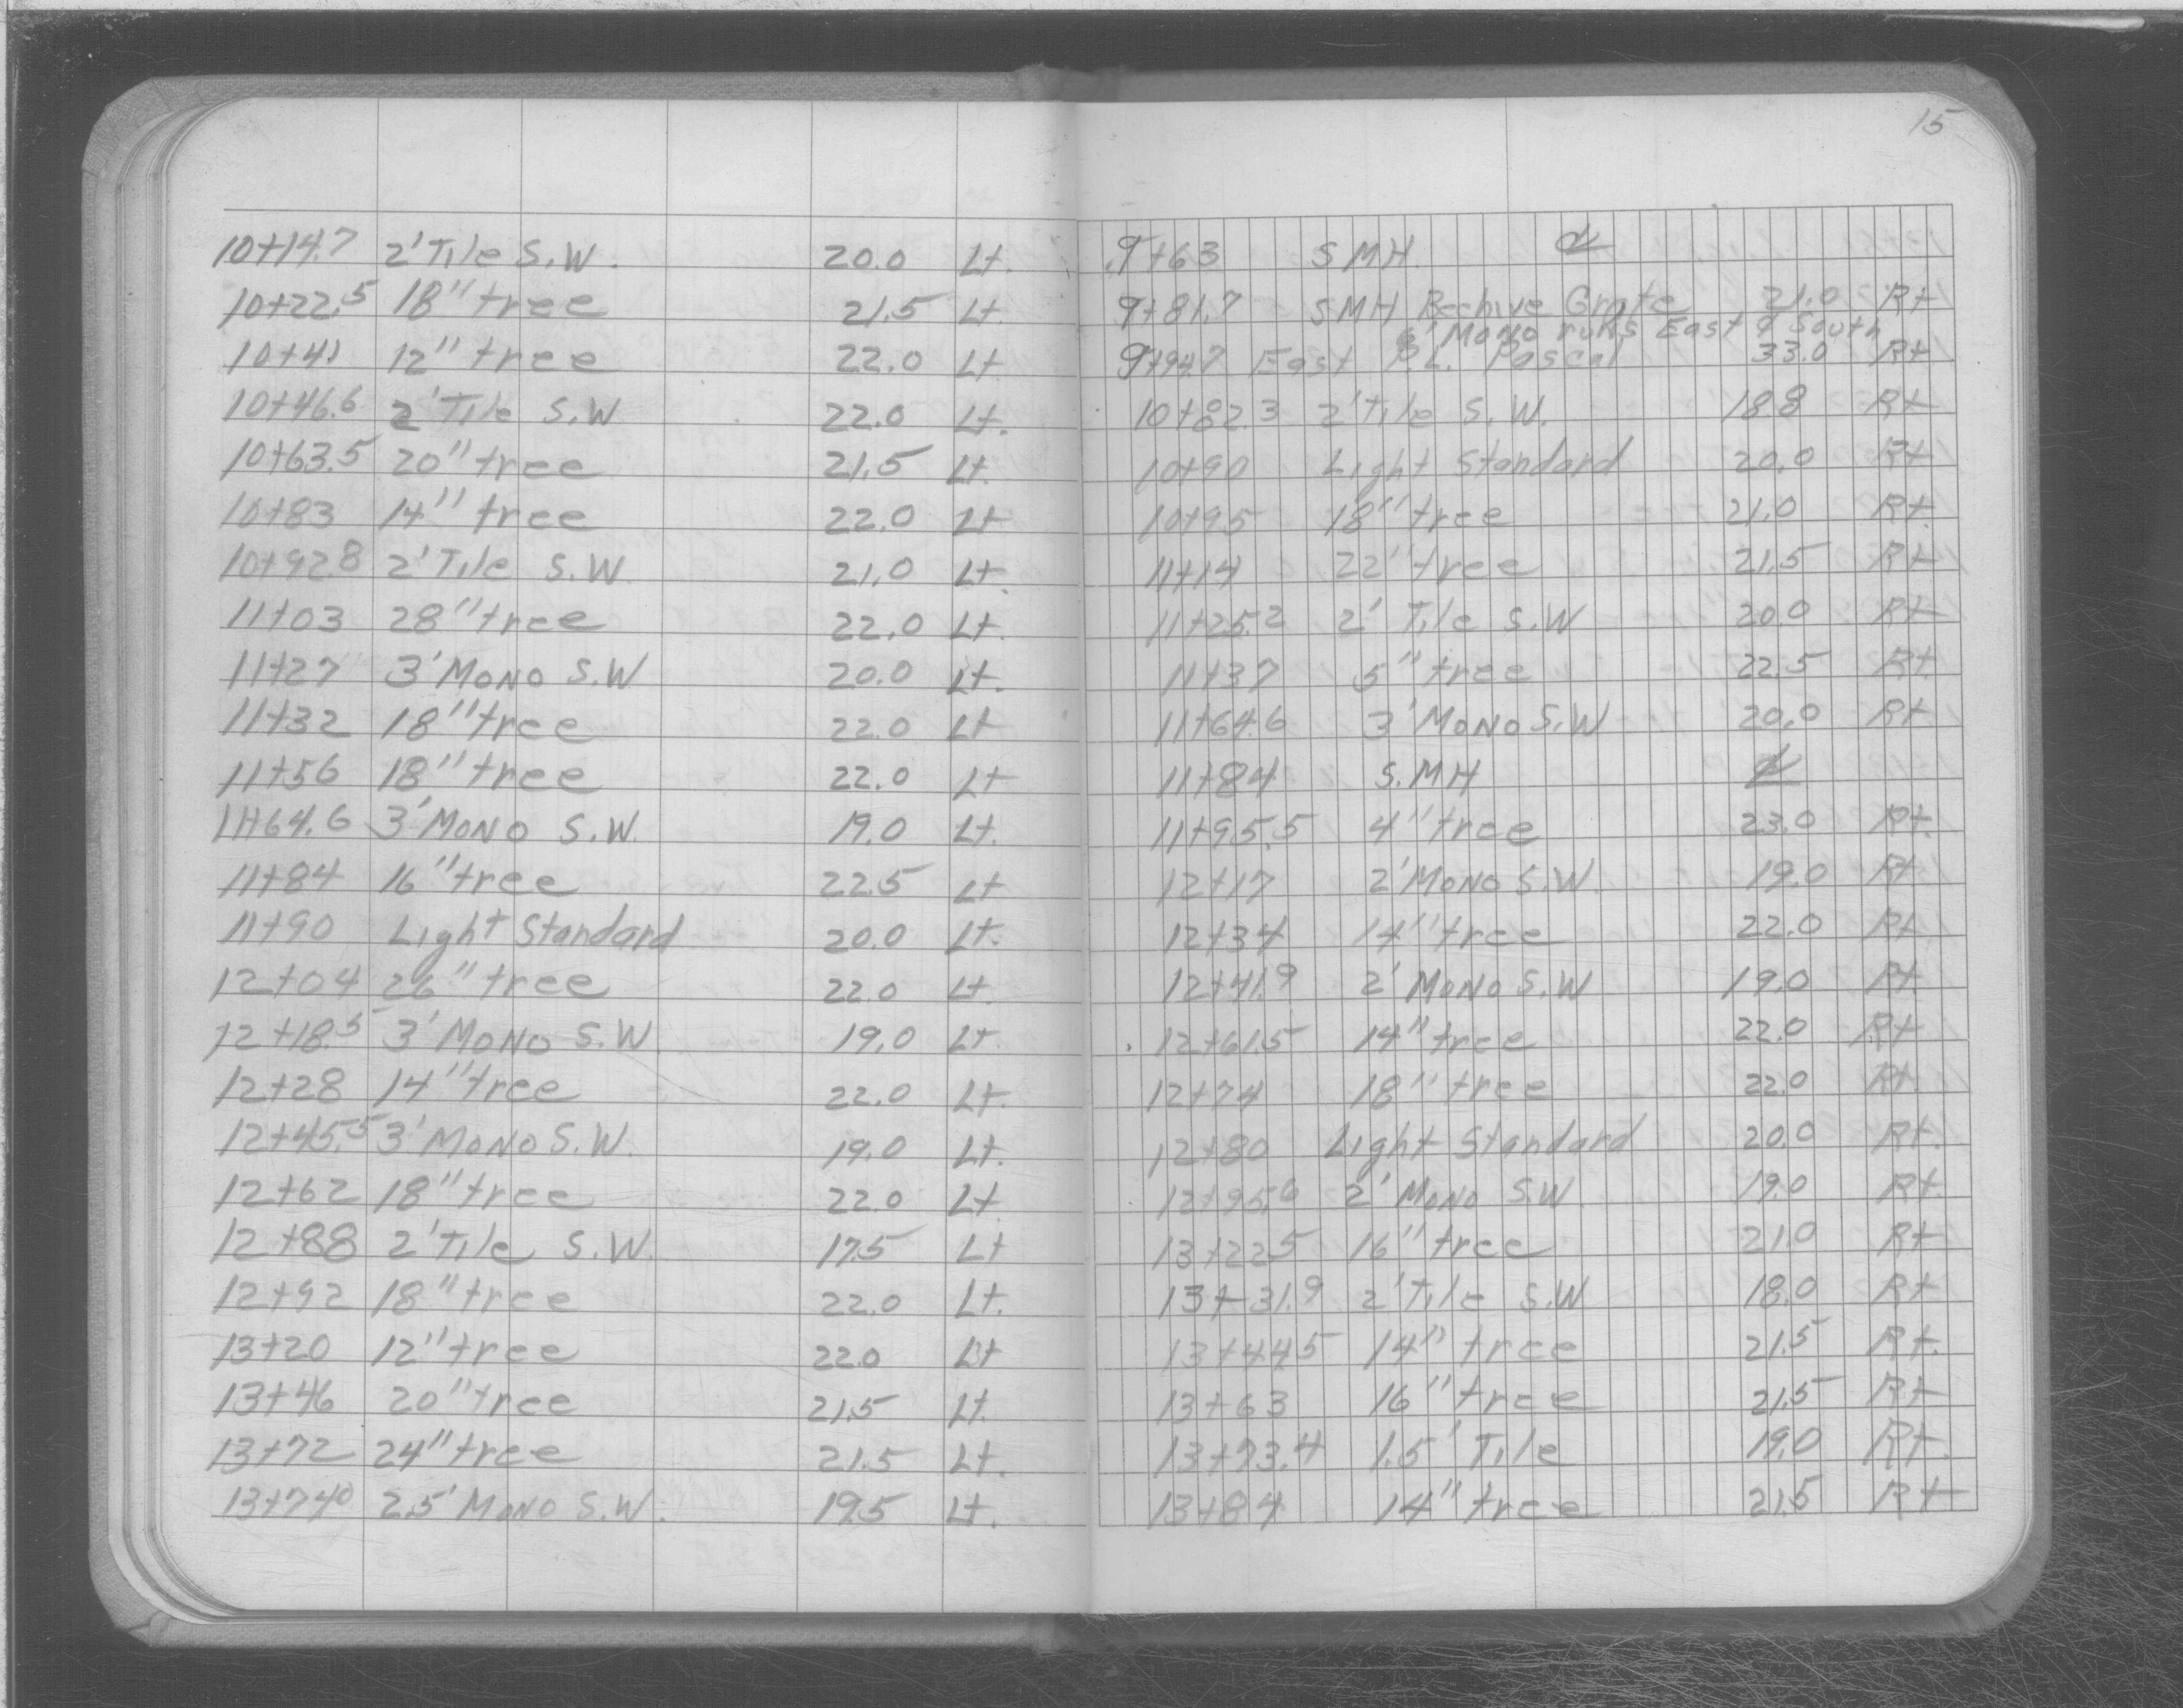 15
10+14.7 2' Tile S.W. 20.0 Lt.
10+22.5 18" tree 21.5 Lt.
10+41 12" tree 22.0 Lt.
10+46.6 2' Tile S.W 22.0 Lt.
10+63.5 20" tree 21.5 Lt.
10+83 14" tree 22.0 Lt
10+92.8 2' Tile S.W. 21.0 Lt.
11+03 28" tree 22.0 Lt.
11+27 3' MONO S.W 20.0 Lt.
11+32 18" tree 22.0 Lt
11+56 18" tree 22.0 Lt
11+64.6 3' MONO S.W. 19.0 Lt.
11+84 16" tree 22.5 Lt
11+90 Light Standard 20.0 Lt.
12+04 26" tree 22.0 Lt.
12+18.5 3' MONO S.W. 19.0 Lt.
12+28 14" tree 22.0 Lt.
12+45.5 3' MONO S.W. 19.0 Lt.
12+62 18" tree 22.0 Lt.
12+88 2' Tile S.W. 17.5 Lt
12+92 18" tree 22.0 Lt.
13+20 12" tree 22.0 Lt
13+46 20" tree 21.5 Lt.
13+72 24" tree 21.5 Lt.
13+74.0 2.5' MONO S.W. 19.5 Lt.
9+63 SMH ℄
9+81.7 SMH Beehive Grate 21.0 Rt
6' Mono runs East & South
9+94.7 East P.L. Pascal 33.0 Rt
10+82.3 2' Tile S.W. 18.8 Rt
10+90 Light Standard 20.0 Rt
10+95 18" tree 21.0 Rt.
11+14 22" tree 21.5 Rt
11+25.2 2' Tile S.W 20.0 Rt
11+37 5" tree 22.5 Rt.
11+64.6 3' MONO S.W 20.0 Rt
11+84 S.MH ℄
11+95.5 4" tree 23.0 Rt.
12+17 2' MONO S.W. 19.0 Rt
12+34 14" tree 22.0 Rt
12+41.9 2' MONO S.W 19.0 Rt.
12+61.5 14" tree 22.0 Rt
12+74 18" tree 22.0 Rt.
12+80 Light Standard 20.0 Rt.
12+95.6 2' MONO S.W. 19.0 Rt.
13+22.5 16" tree 21.0 Rt
13+31.9 2' Tile S.W 18.0 Rt
13+44.5 14" tree 21.5 Rt.
13+63 16" tree 21.5 Rt
13+73.4 1.5' Tile 19.0 Rt.
13+84 14" tree 21.5 Rt